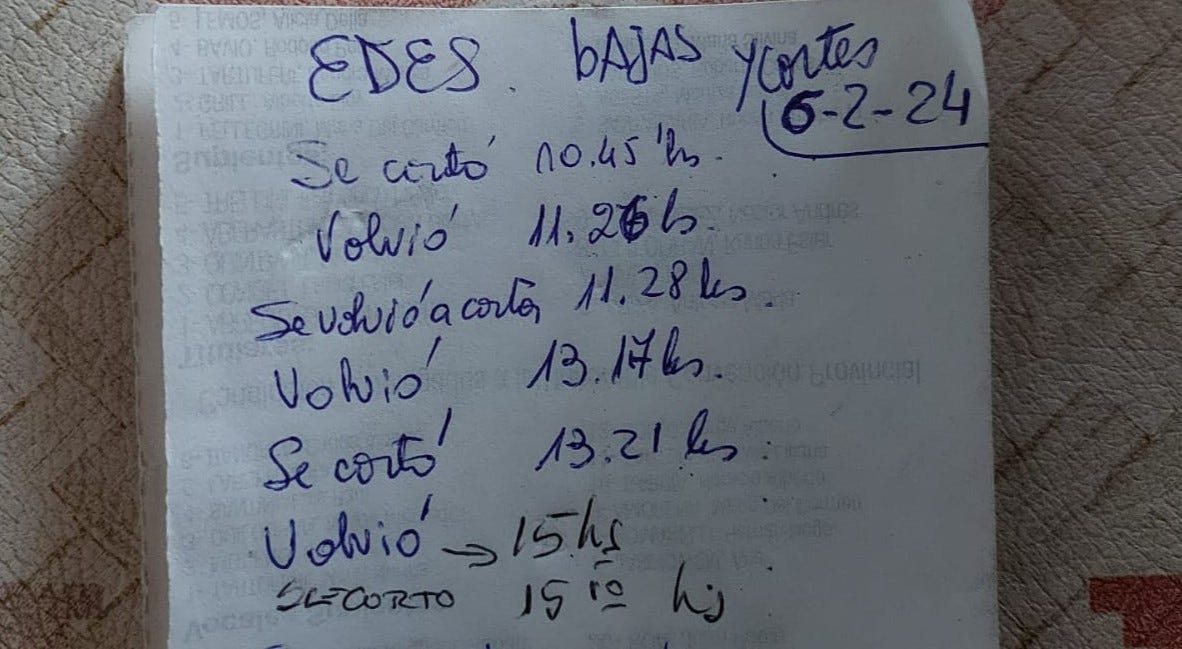 EDES. bAJAS y cortes
6-2-24
Se cortó 10.45 hs.
Volvió 11.26 hs.
Se volvió a cortar 11.28 hs.
Volvió 13.17 hs.
Se cortó 13.21 hs.
Volvió → 15 hs
SE CORTO 15 10 hs